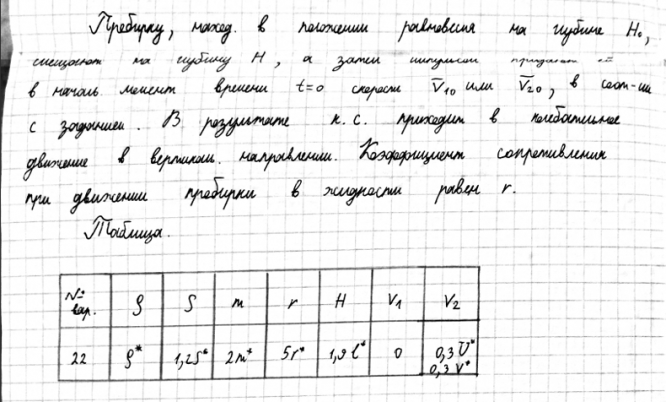 Пробирку, наход. в положении равновесия на глубине H₀,
смещают на глубину H, а затем импульсом придают ей
в началь. момент времени t=0 скорость V̅₁₀ или V̅₂₀, в соот-ии
с заданием. В результате к.с. приходит в колебательное
движение в вертикал. направлении. Коэффициент сопротивления
при движении пробирки в жидкости равен r.
Таблица.
№ вар. ρ S m r H V₁ V₂
22 ρ* 1,2S* 2m* 5r* 1,9l* 0 0,3V*
0,3V*